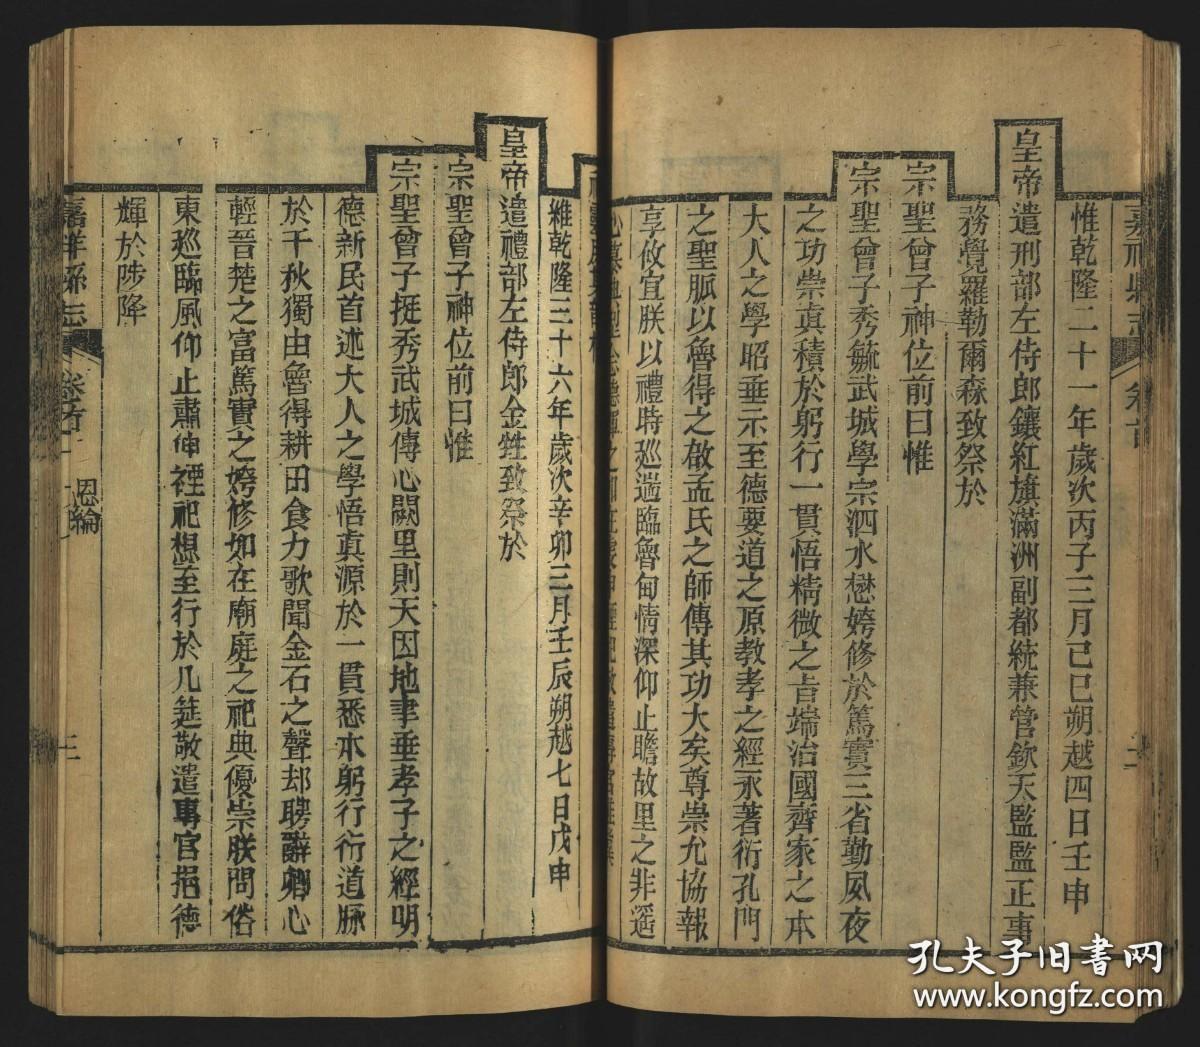 嘉祥縣志
卷首
二
惟乾隆二十一年歲次丙子三月己巳朔越四日壬申
皇帝遣刑部左侍郎鑲紅旗滿洲副都統兼管欽天監監正事
務覺羅勒爾森致祭於
宗聖曾子神位前曰惟
宗聖曾子秀毓武城學宗泗水懋姱修於篤實三省勤夙夜
之功崇真積於躬行一貫悟精微之旨端治國齊家之本
大人之學昭垂示至德要道之原教孝之經永著衍孔門
之聖脈以魯得之啟孟氏之師傳其功大矣尊崇允協報
享攸宜朕以禮時廵遄臨魯甸情深仰止瞻故里之非遥
維乾隆三十六年歲次辛卯三月壬辰朔越七日戊申
皇帝遣禮部左侍郎金甡致祭於
宗聖曾子神位前曰惟
宗聖曾子挺秀武城傳心闕里則天因地聿垂孝子之經明
德新民首述大人之學悟真源於一貫悉本躬行衍道脉
於千秋獨由魯得耕田食力歌聞金石之聲却聘辭卿心
輕晉楚之富篤實之姱修如在廟庭之祀典優崇朕問俗
東廵臨風仰止肅伸禋祀想至行於几筵敬遣專官挹德
輝於陟降
嘉祥縣志
卷首
恩綸
三
孔夫子旧书网
www.kongfz.com